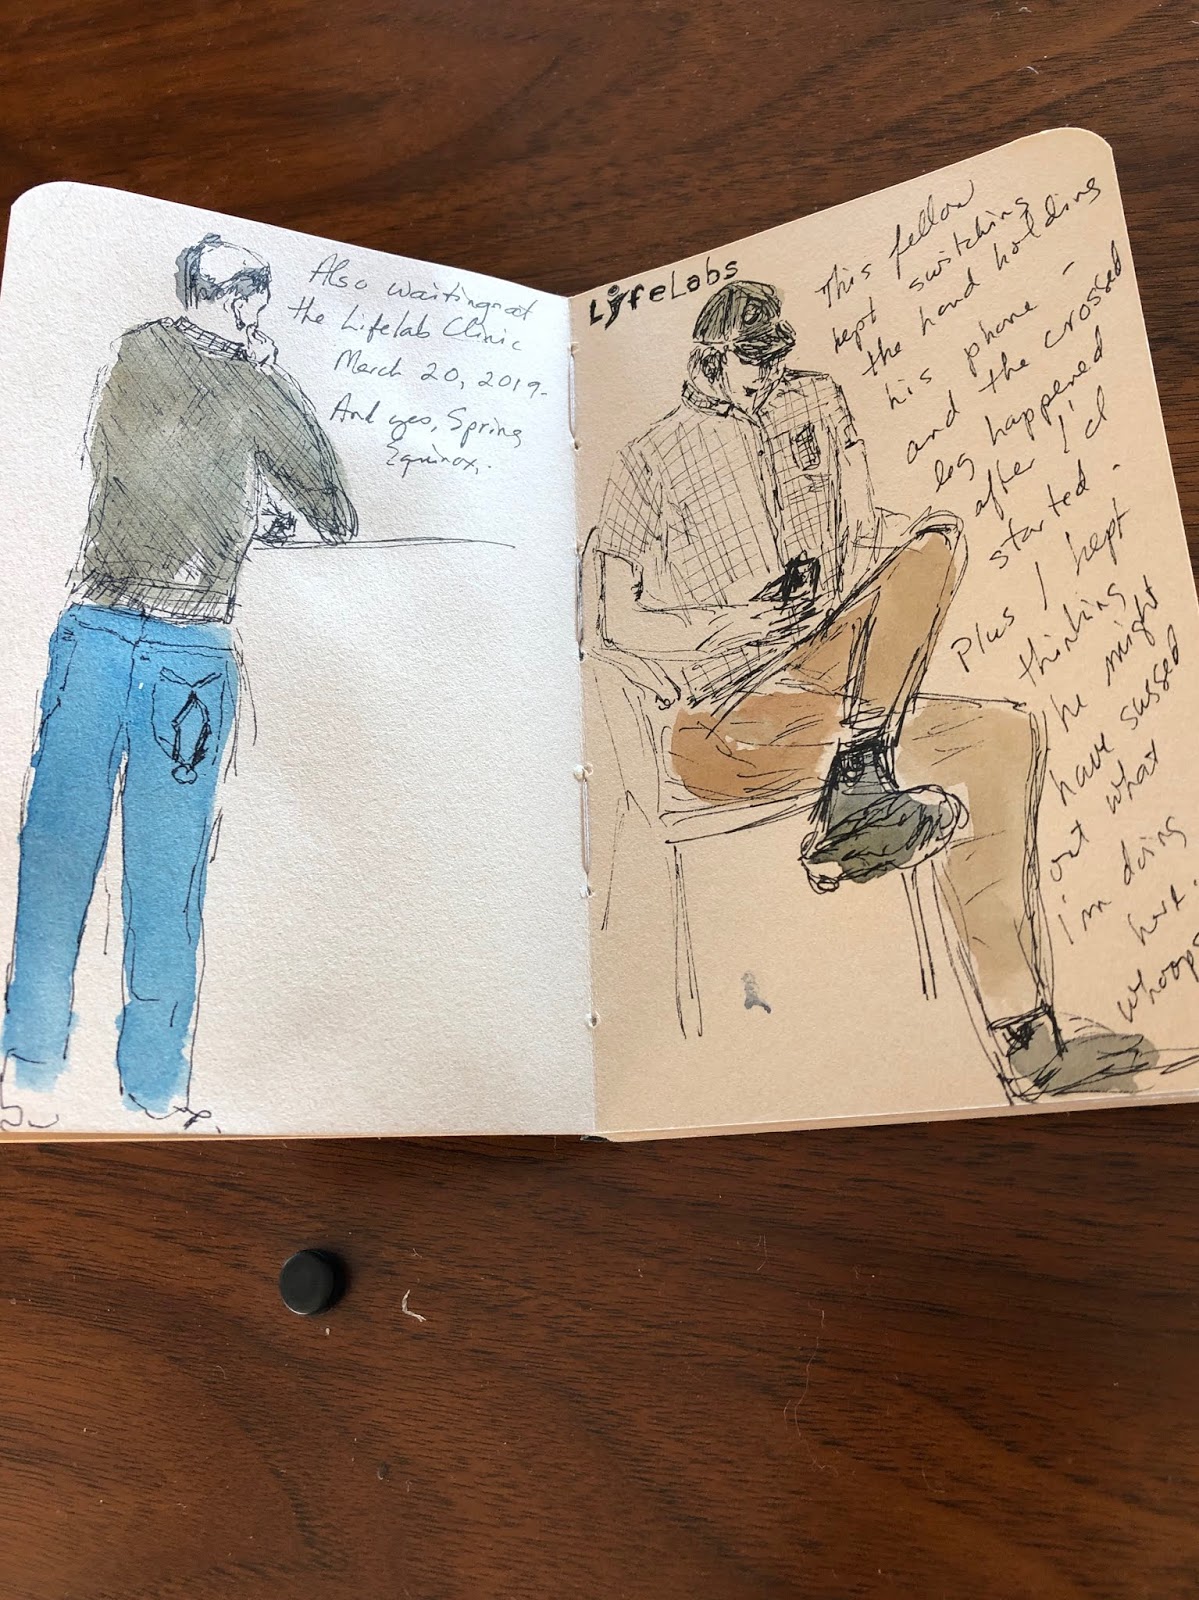 Also waiting at
the Lifelab Clinic
March 20, 2019.
And yes, Spring
Equinox.
LifeLabs
This fellow
kept switching
the hand holding
his phone –
and the crossed
leg happened
after I'd
started.
Plus I kept
thinking
he might
have sussed
out what
I'm doing
here.
whoops